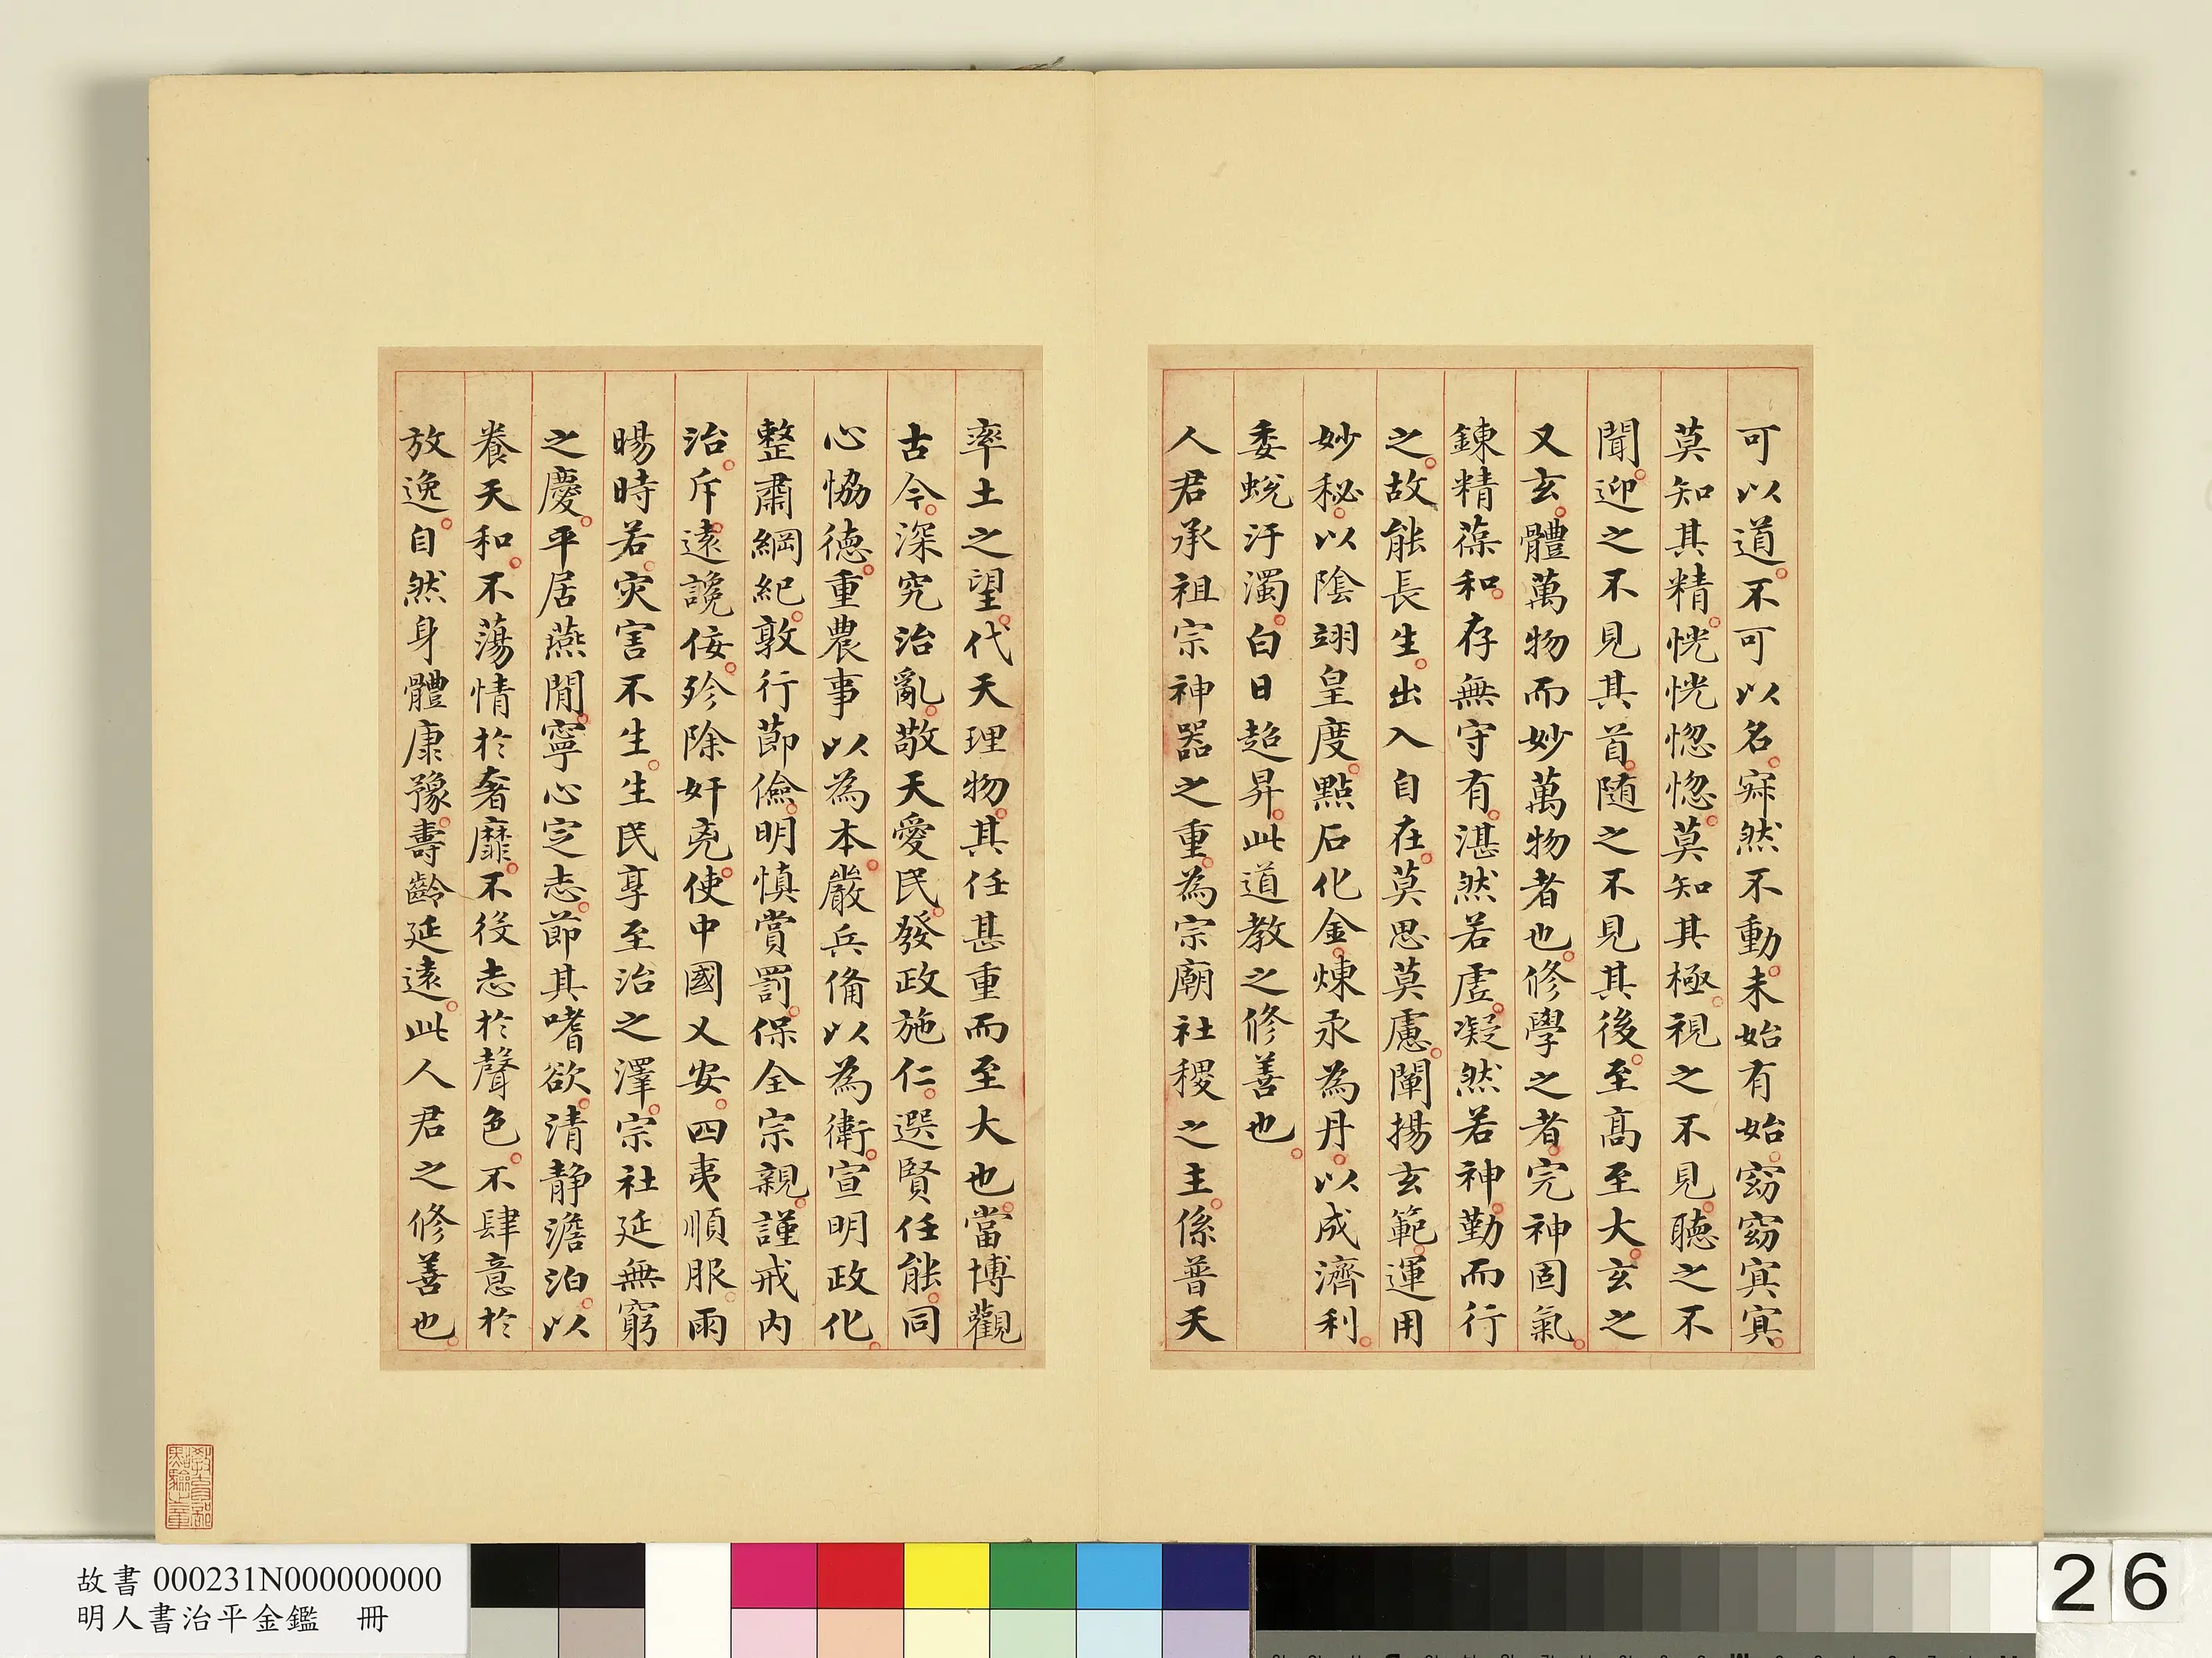 可以道不可以名寂然不動未始有始窈窈冥冥
莫知其精恍恍惚惚莫知其極視之不見聽之不
聞迎之不見其首随之不見其後至髙至大玄之
又玄體萬物而妙萬物者也修學之者完神固氣
鍊精葆和存無守有湛然若虛凝然若神勤而行
之故能長生出入自在莫思莫慮闡揚玄範運用
妙秘以陰翊皇度點石化金煉汞為丹以成濟利
委蛻汙濁白日超昇此道教之修善也
人君承祖宗神器之重為宗廟社稷之主係普天
率土之望代天理物其任甚重而至大也當博觀
古今深究治亂敬天愛民發政施仁選賢任能同
心恊德重農事以為本嚴兵俻以為衛宣明政化
整肅綱紀敦行節儉明慎賞罰保全宗親謹戒内
治斥遠讒佞殄除奸兇使中國乂安四夷順服雨
暘時若灾害不生生民享至治之澤宗社延無窮
之慶平居燕閒寧心定志節其嗜欲清静澹泊以
養天和不蕩情於奢靡不役志於聲色不肆意於
放逸自然身體康豫壽齡延遠此人君之修善也
教育部點驗之章
故書 000231N000000000
明人書治平金鑑 冊
26